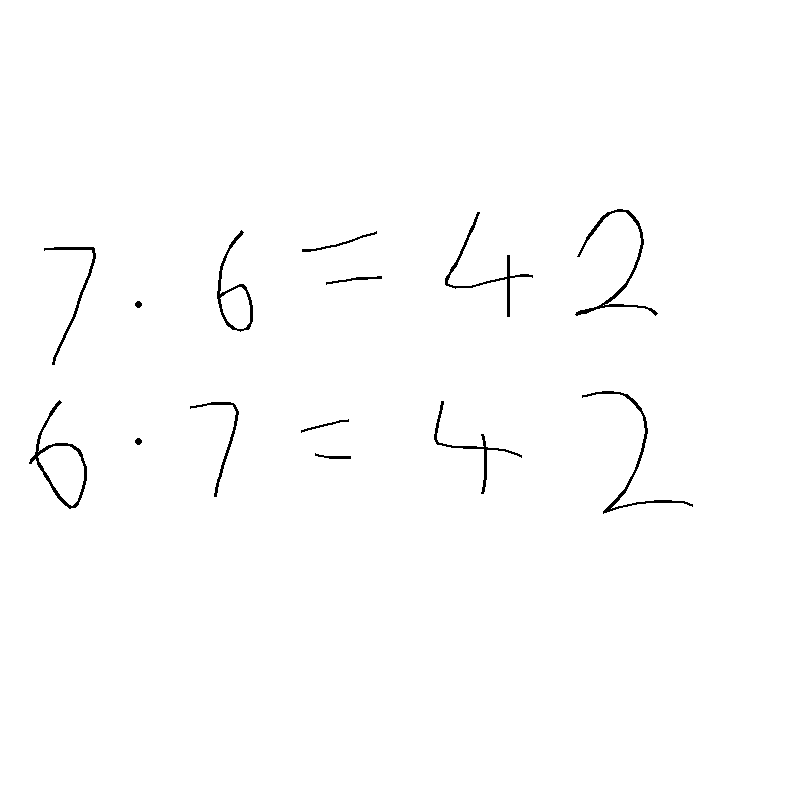 7 · 6 = 42
6 · 7 = 42